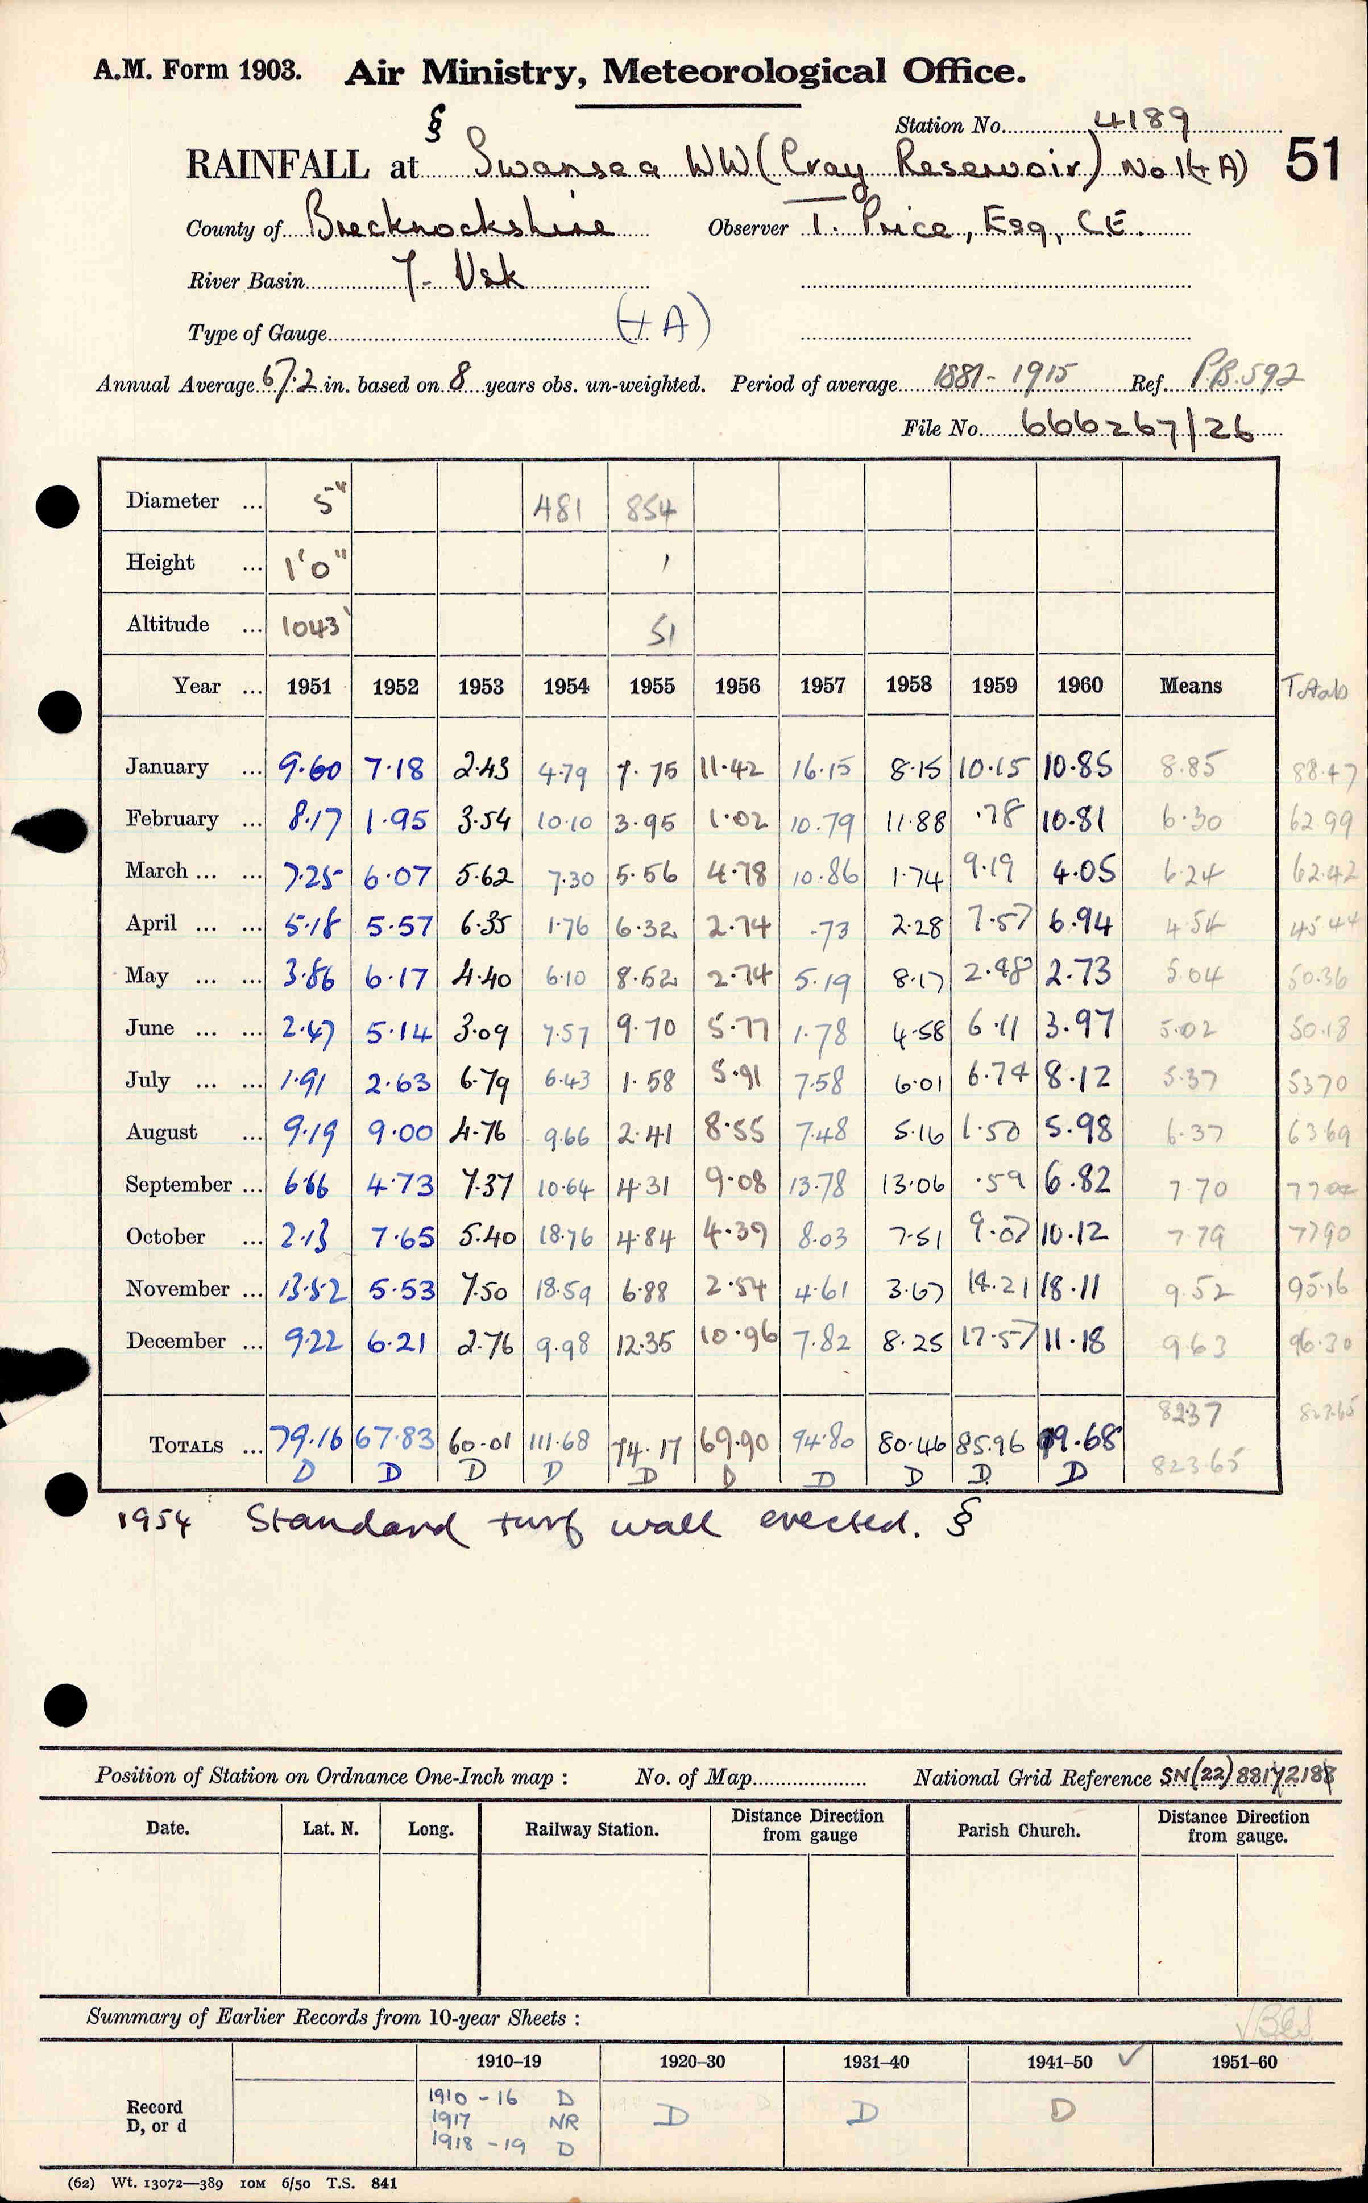 A.M. Form 1903. Air Ministry, Meteorological Office.
§
Station No. 4189
RAINFALL at Swansea WW (Cray Reservoir) No 1 (+ A) 51
County of Brecknockshire Observer T. Price, Esq, C.E.
River Basin 7- Usk
Type of Gauge (+ A)
Annual Average 67.2 in. based on 8 years obs. un-weighted. Period of average 1881-1915 Ref. P.B. 592
File No. 666267/26
Diameter ... 5" 481 854
Height ... 1'0" '
Altitude ... 1043' 51
Year ... 1951 1952 1953 1954 1955 1956 1957 1958 1959 1960 Means Totals
January ... 9.60 7.18 2.43 4.79 7.75 11.42 16.15 8.15 10.15 10.85 8.85 88.47
February ... 8.17 1.95 3.54 10.10 3.95 1.02 10.79 11.88 .78 10.81 6.30 62.99
March ... ... 7.25 6.07 5.62 7.30 5.56 4.78 10.86 1.74 9.19 4.05 6.24 62.42
April ... ... 5.18 5.57 6.35 1.76 6.32 2.74 .73 2.28 7.57 6.94 4.54 45.44
May ... ... 3.86 6.17 4.40 6.10 8.52 2.74 5.19 8.17 2.48 2.73 5.04 50.36
June ... ... 2.47 5.14 3.09 7.57 9.70 5.77 1.78 4.58 6.11 3.97 5.02 50.18
July ... ... 1.91 2.63 6.79 6.43 1.58 5.91 7.58 6.01 6.74 8.12 5.37 53.70
August ... 9.19 9.00 4.76 9.66 2.41 8.55 7.48 5.16 1.50 5.98 6.37 63.69
September ... 6.66 4.73 7.37 10.64 4.31 9.08 13.78 13.06 .59 6.82 7.70 77.04
October ... 2.13 7.65 5.40 18.76 4.84 4.39 8.03 7.51 9.07 10.12 7.79 77.90
November ... 13.52 5.53 7.50 18.59 6.88 2.54 4.61 3.67 14.21 18.11 9.52 95.16
December ... 9.22 6.21 2.76 9.98 12.35 10.96 7.82 8.25 17.57 11.18 9.63 96.30
82.37 823.65
TOTALS ... 79.16 67.83 60.01 111.68 74.17 69.90 94.80 80.46 85.96 99.68 823.65
D D D D D D D D D D
1954 Standard turf wall erected. §
Position of Station on Ordnance One-Inch map : No. of Map National Grid Reference SN (22) 881218
Date. Lat. N. Long. Railway Station. Distance Direction from gauge Parish Church. Distance Direction from gauge.
Summary of Earlier Records from 10-year Sheets :
1910–19 1920–30 1931–40 1941–50 ✓ 1951–60
Record D, or d
1910 - 16 D
1917 NR
1918 - 19 D
D D D
(62) Wt. 13072—389 10M 6/50 T.S. 841